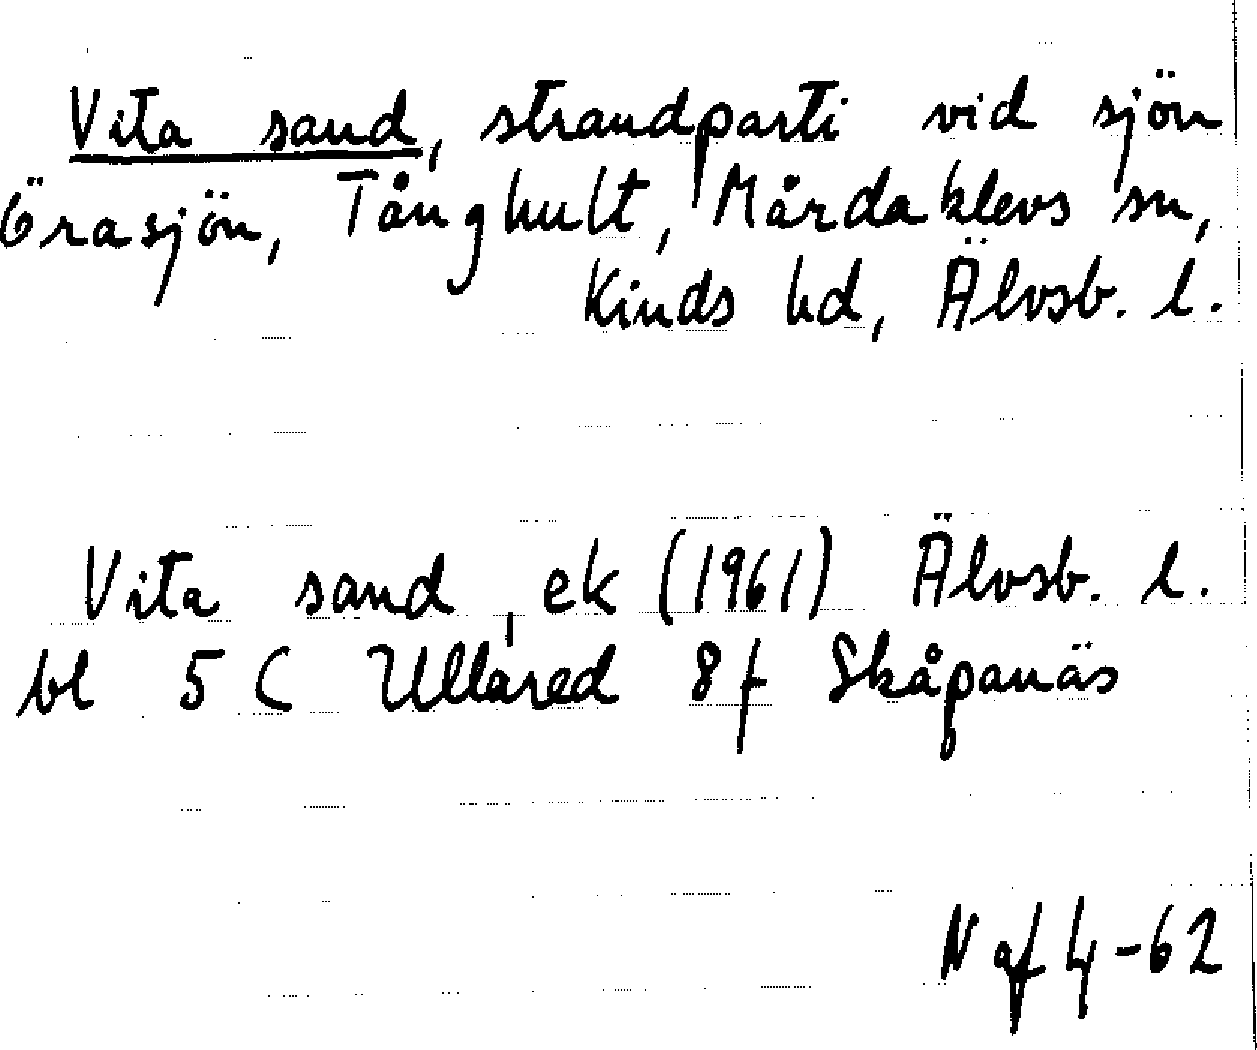 Vita sand, strandparti vid sjön
Örasjön, Tånghult, Mårdaklevs sn,
Kinds hd, Älvsb. l.
Vita sand, ek (1961) Älvsb. l.
bl 5 C Ullared 8 f Skåpanäs
N af 4-62